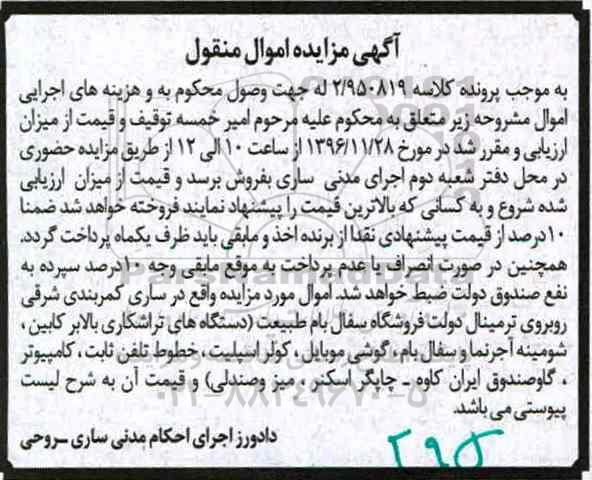 آگهی مزایده اموال منقول
به موجب پرونده کلاسه ۲/۹۵۰۸۱۹ له جهت وصول محکوم به و هزینه های اجرایی
اموال مشروحه زیر متعلق به محکوم علیه مرحوم امیر خمسه توقیف و قیمت از میزان
ارزیابی و مقرر شد در مورخ ۱۳۹۶/۱۱/۲۸ از ساعت ۱۰ الی ۱۲ از طریق مزایده حضوری
در محل دفتر شعبه دوم اجرای مدنی ساری بفروش برسد و قیمت از میزان ارزیابی
شده شروع و به کسانی که بالاترین قیمت را پیشنهاد نمایند فروخته خواهد شد ضمنا
۱۰درصد از قیمت پیشنهادی نقدا از برنده اخذ و مابقی باید ظرف یکماه پرداخت گردد.
همچنین در صورت انصراف یا عدم پرداخت به موقع مابقی وجه ۱۰درصد سپرده به
نفع صندوق دولت ضبط خواهد شد. اموال مورد مزایده واقع در ساری کمربندی شرقی
روبروی ترمینال دولت فروشگاه سفال بام طبیعت (دستگاه های تراشکاری بالابر کابین ،
شومینه آجرنما و سفال بام ، گوشی موبایل ، کولر اسپلیت ، خطوط تلفن ثابت ، کامپیوتر
، گاوصندوق ایران کاوه ـ چاپگر اسکنر ، میز وصندلی) و قیمت آن به شرح لیست
پیوستی می باشد.
دادورز اجرای احکام مدنی ساری ـروحی
۲۹۵
ParsNamadData
۰۲۱-۸۸۳۴۹۶۷۰-۵